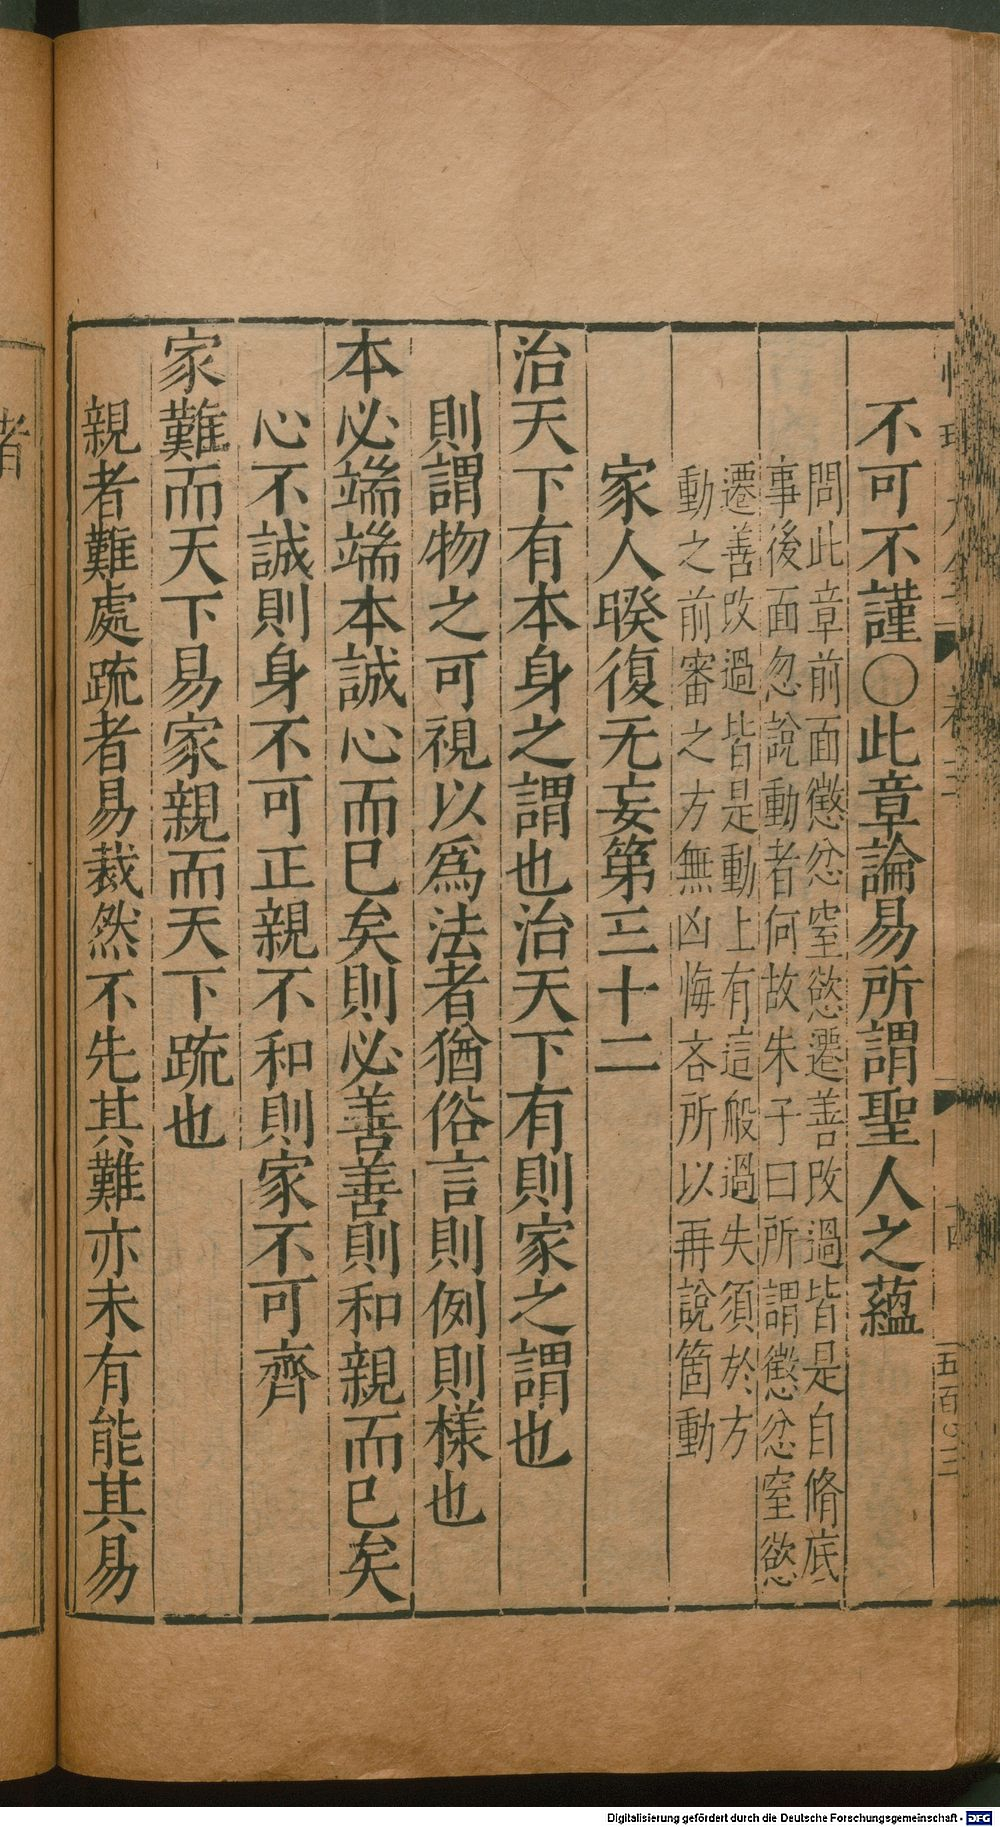 不可不謹○此章論易所謂聖人之蘊
問此章前面懲忿窒慾遷善改過皆是自脩底
事後面忽說動者何故朱子曰所謂懲忿窒慾
遷善改過皆是動上有這般過失須於方
動之前審之方無凶悔吝所以再說箇動
家人暌復无妄第三十二
治天下有本身之謂也治天下有則家之謂也
則謂物之可視以爲法者猶俗言則例則樣也
本必端端本誠心而巳矣則必善善則和親而巳矣
心不誠則身不可正親不和則家不可齊
家難而天下易家親而天下疏也
親者難處疏者易裁然不先其難亦未有能其易
者
五百〇三
Digitalisierung gefördert durch die Deutsche Forschungsgemeinschaft - DFG